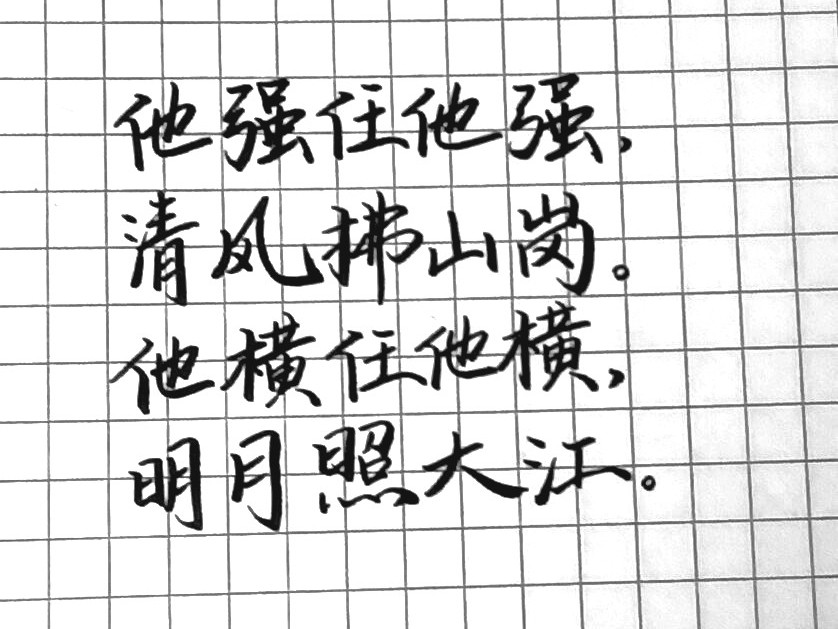 他强任他强，
清风拂山岗。
他横任他横，
明月照大江。